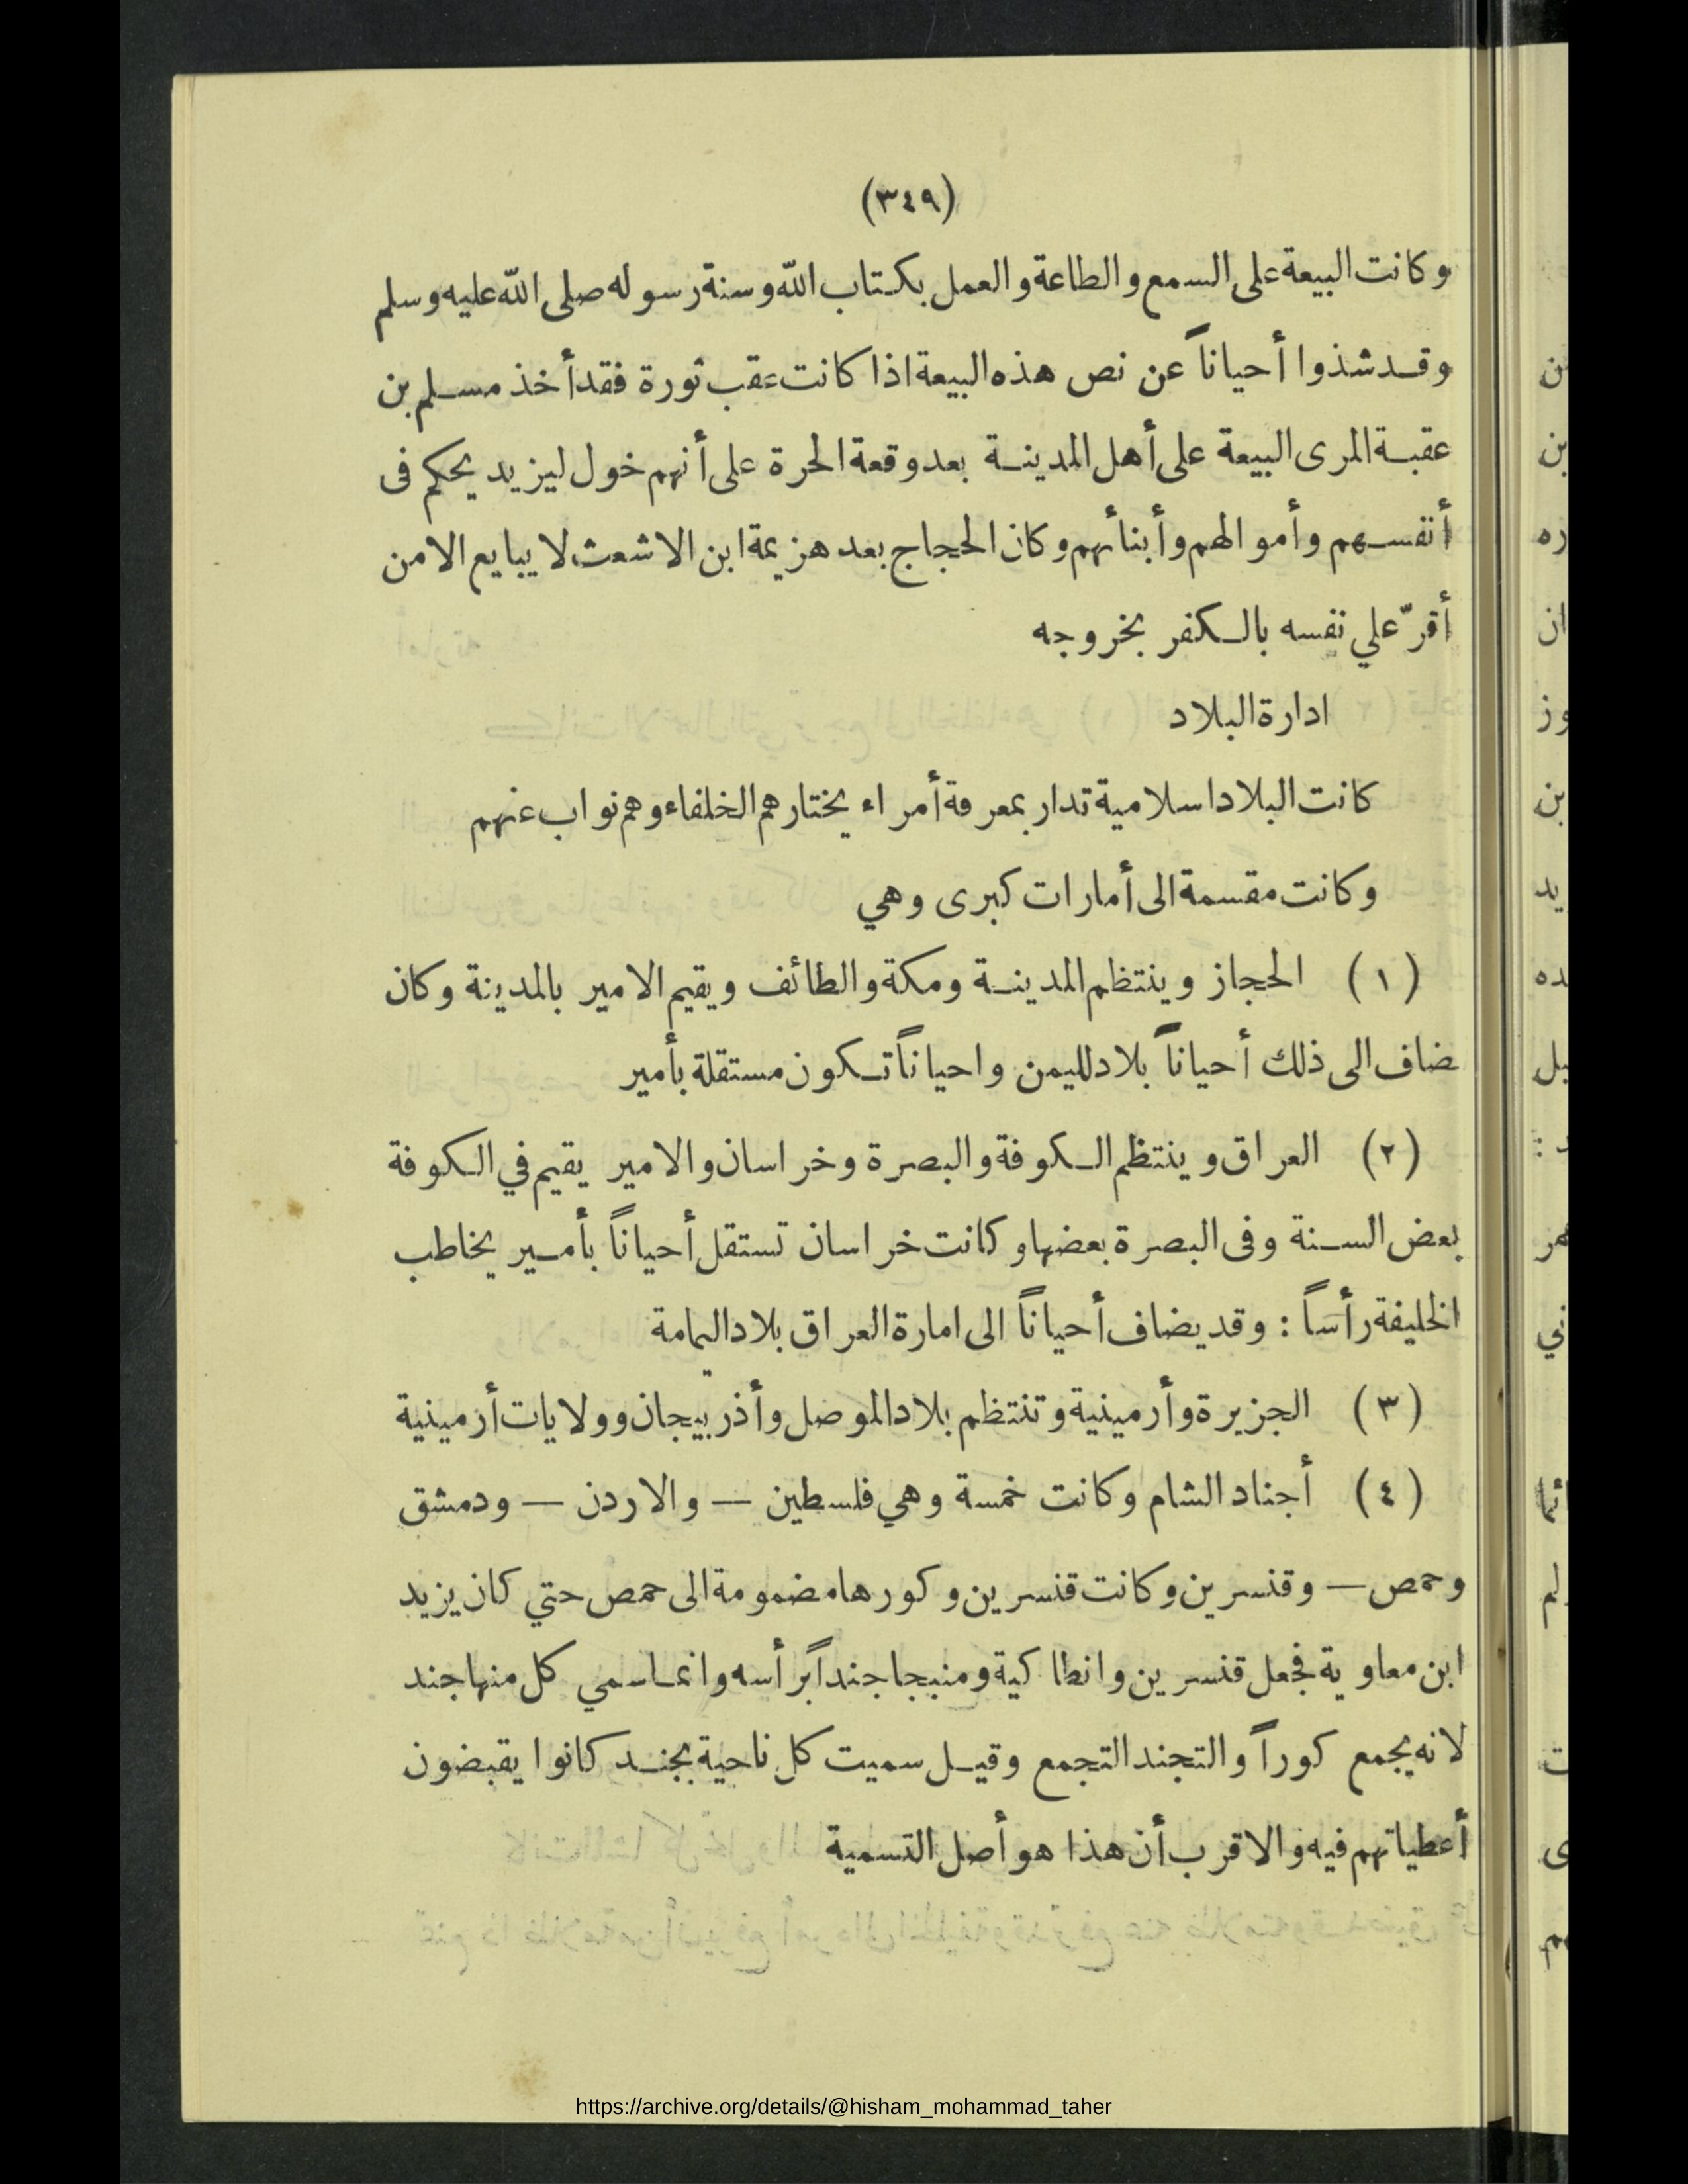 (٣٤٩)
وكانت البيعة على السمع والطاعة والعمل بكتاب الله وسنة رسوله صلى الله عليه وسلم
وقد شذوا أحياناً عن نص هذه البيعة اذا كانت عقب ثورة فقد أخذ مسلم بن
عقبة المرى البيعة على أهل المدينة بعد وقعة الحرة على أنهم خول ليزيد يحكم فى
أنفسهم وأموالهم وأبنائهم وكان الحجاج بعد هزيمة ابن الاشعث لا يبايع الا من
أقرّ علي نفسه بالكفر بخروجه
ادارة البلاد
كانت البلاد اسلامية تدار بمعرفة أمراء يختارهم الخلفاء وهم نواب عنهم
وكانت مقسمة الى أمارات كبرى وهي
(١) الحجاز وينتظم المدينة ومكة والطائف ويقيم الامير بالمدينة وكان
ضاف الى ذلك أحياناً بلاد لليمن واحياناً تكون مستقلة بأمير
(٢) العراق وينتظم الكوفة والبصرة وخراسان والامير يقيم في الكوفة
بعض السنة وفى البصرة بعضها وكانت خراسان تستقل أحياناً بأمير يخاطب
الخليفة رأساً : وقد يضاف أحياناً الى امارة العراق بلاد اليمامة
(٣) الجزيرة وأرمينية وتنتظم بلاد الموصل وأذربيجان وولايات أرمينية
(٤) أجناد الشام وكانت خمسة وهي فلسطين — والاردن — ودمشق
وحمص — وقنسرين وكانت قنسرين وكورها مضمومة الى حمص حتي كان يزيد
ابن معاوية فجعل قنسرين وانطاكية ومنبجا جنداً برأسه وانما سمي كل منها جند
لانه يجمع كوراً والتجند التجمع وقيل سميت كل ناحية بجند كانوا يقبضون
أعطياتهم فيه والاقرب أن هذا هو أصل التسمية
https://archive.org/details/@hisham_mohammad_taher